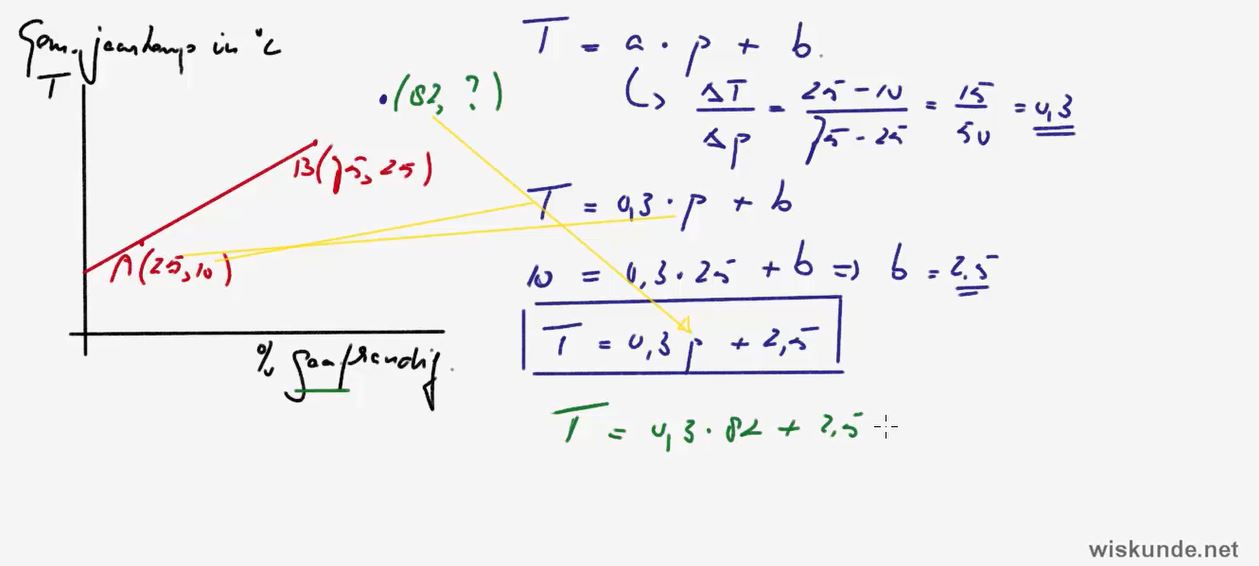 Gem. jaartemp in °C
T
.(82, ?)
B(75, 25)
A(25, 10)
% gaafrandig.
T = a · p + b.
↳ ΔT/Δp = 25 - 10/75 - 25 = 15/50 = 0,3
T = 0,3 · p + b
10 = 0,3 · 25 + b => b = 2,5
T = 0,3 p + 2,5
T = 0,3 · 82 + 2,5
wiskunde.net